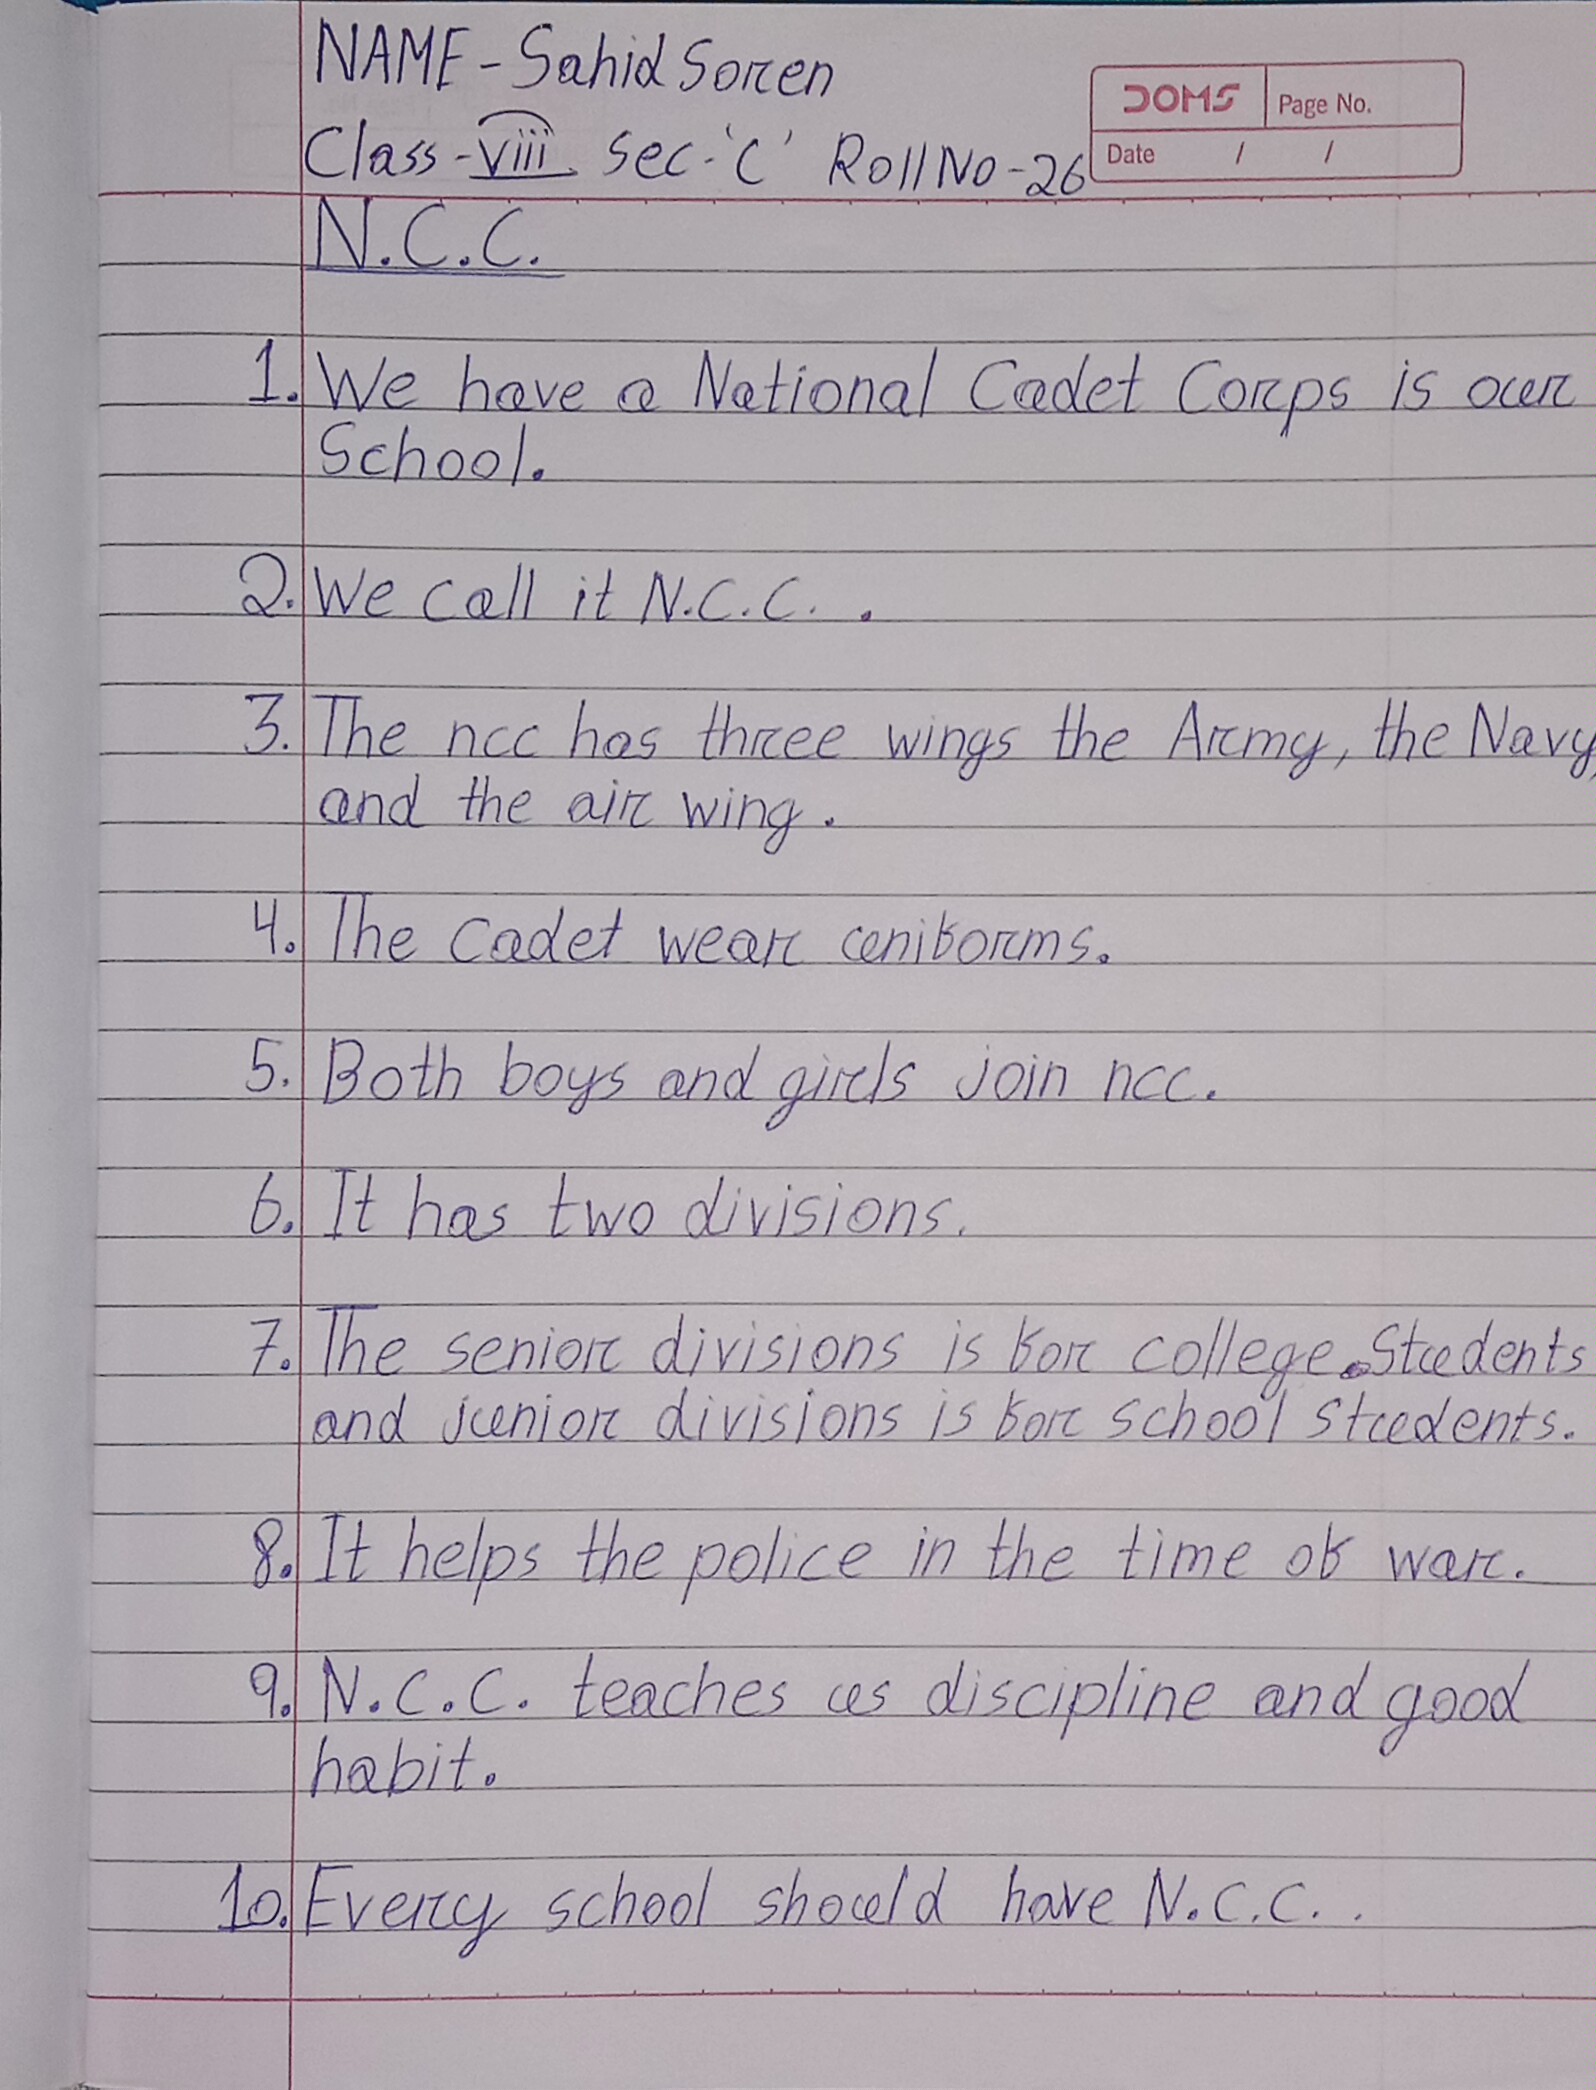 NAME - Sahid Soren
DOMS Page No.
Class - viii Sec - 'C' Roll No - 26
Date / /
N.C.C.
1. We have a National Cadet Corps is our
School.
2. We call it N.C.C. .
3. The ncc has three wings the Army, the Navy,
and the air wing.
4. The Cadet wear uniforms.
5. Both boys and girls join ncc.
6. It has two divisions.
7. The senior divisions is for college Students
and junior divisions is for school students.
8. It helps the police in the time of war.
9. N.C.C. teaches us discipline and good
habit.
10. Every school should have N.C.C. .